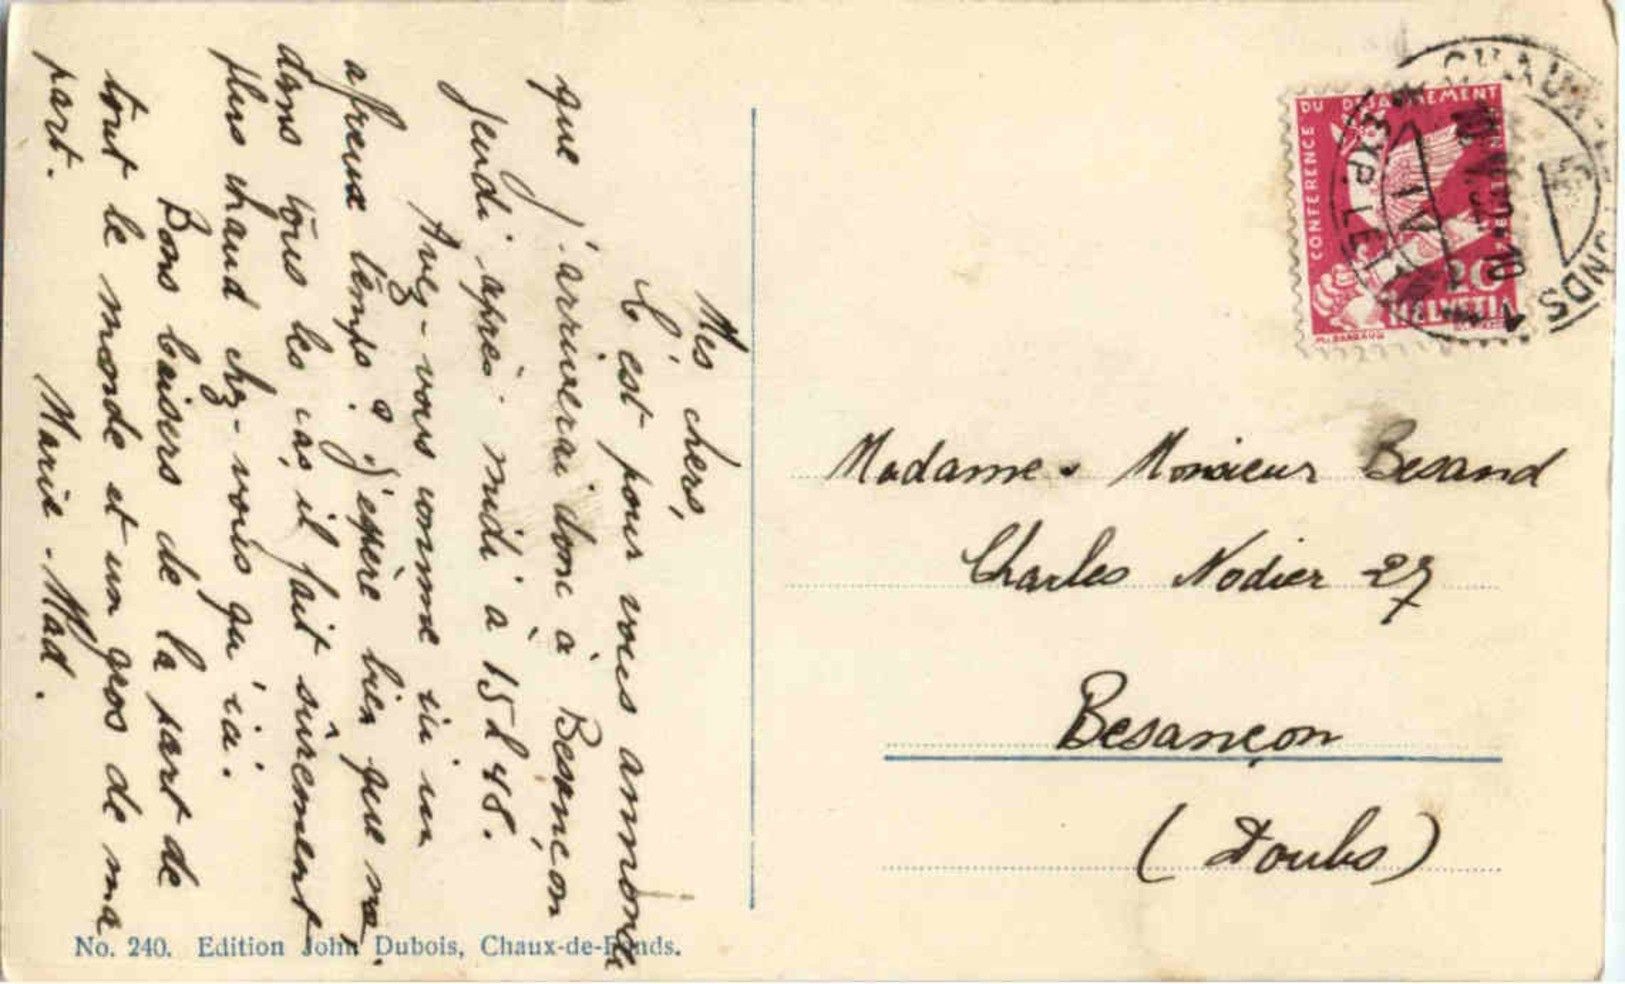 Mes chers,
C'est pour vous annoncer
que j'arriverai donc à Besançon
jeudi après-midi à 15h48.
Avez-vous comme ici un
affreux temps? J'espère bien que non.
dans tous les cas il fait sûrement
plus chaud chez-vous qu'ici.
Bons baisers de la part de
tout le monde et un gros de ma
part. Marie-Mad.
No. 240. Edition John Dubois, Chaux-de-Fonds.
CONFERENCE DU DESARMEMENT
20
HELVETIA
CHAUX-DE-FONDS 1
EXP. LET
Madame. Monsieur Besand
Charles Nodier 27
Besançon
(Doubs)